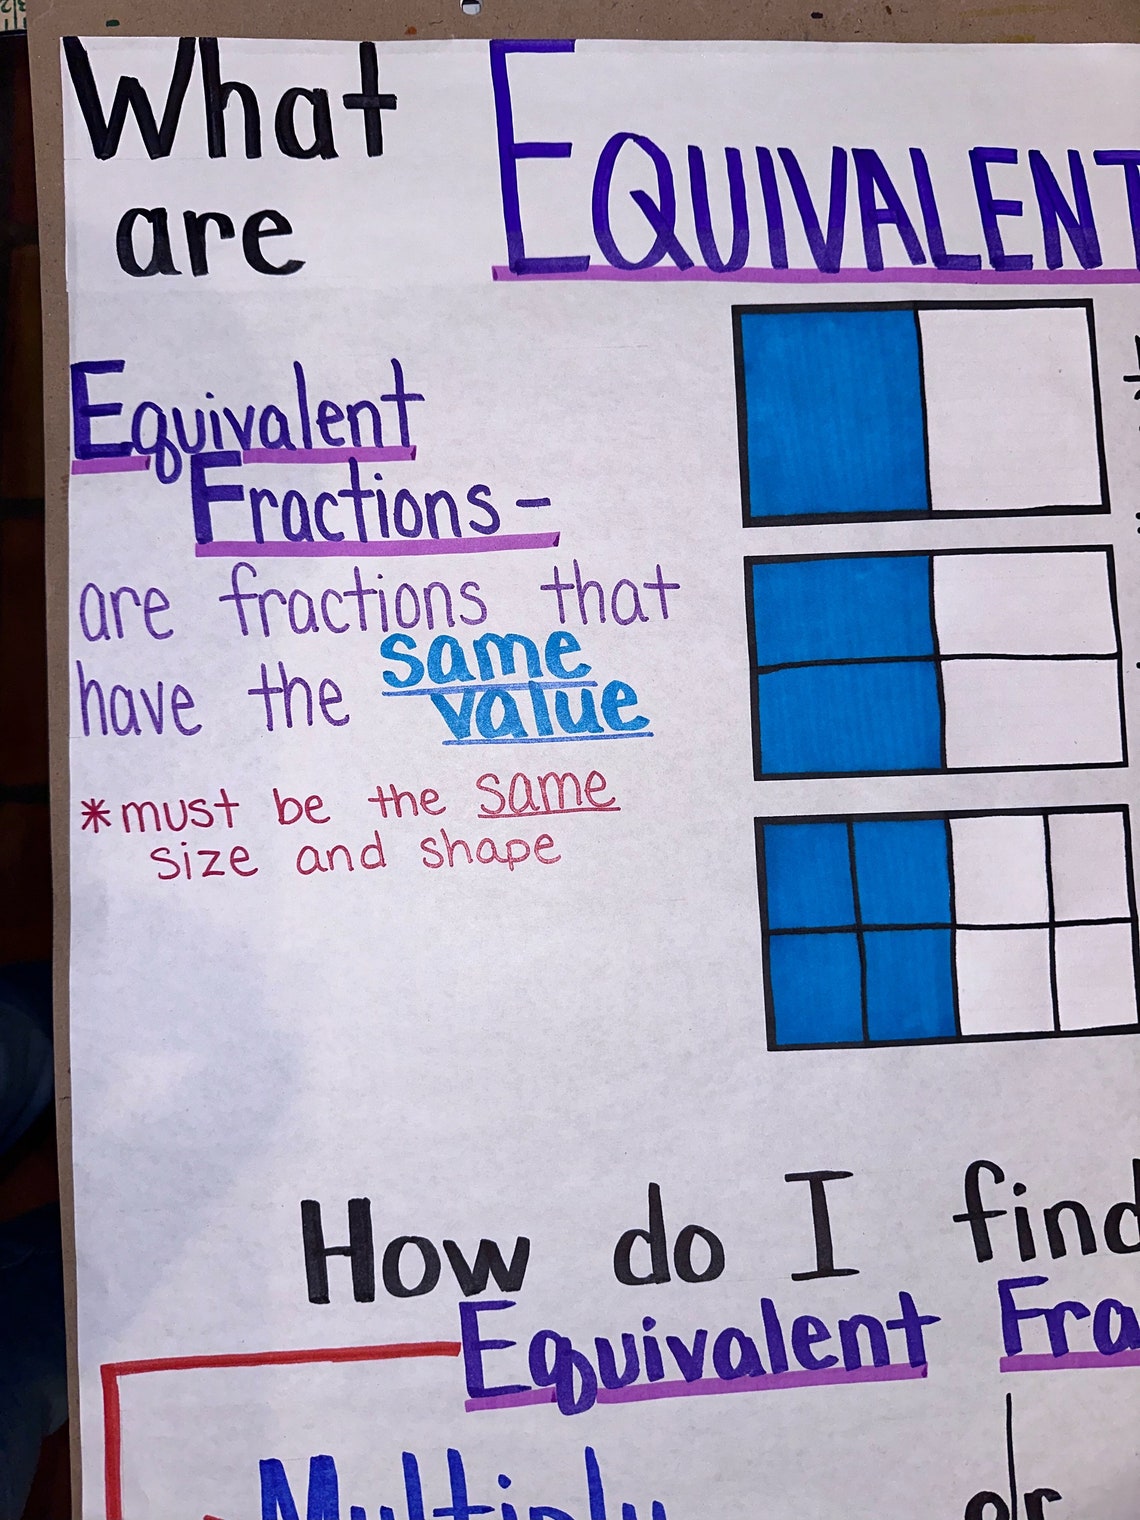 What
are
EQUIVALENT
Equivalent
Fractions-
are fractions that
have the same
value
*must be the same
size and shape
How do I find
Equivalent Fra
Multiply
or